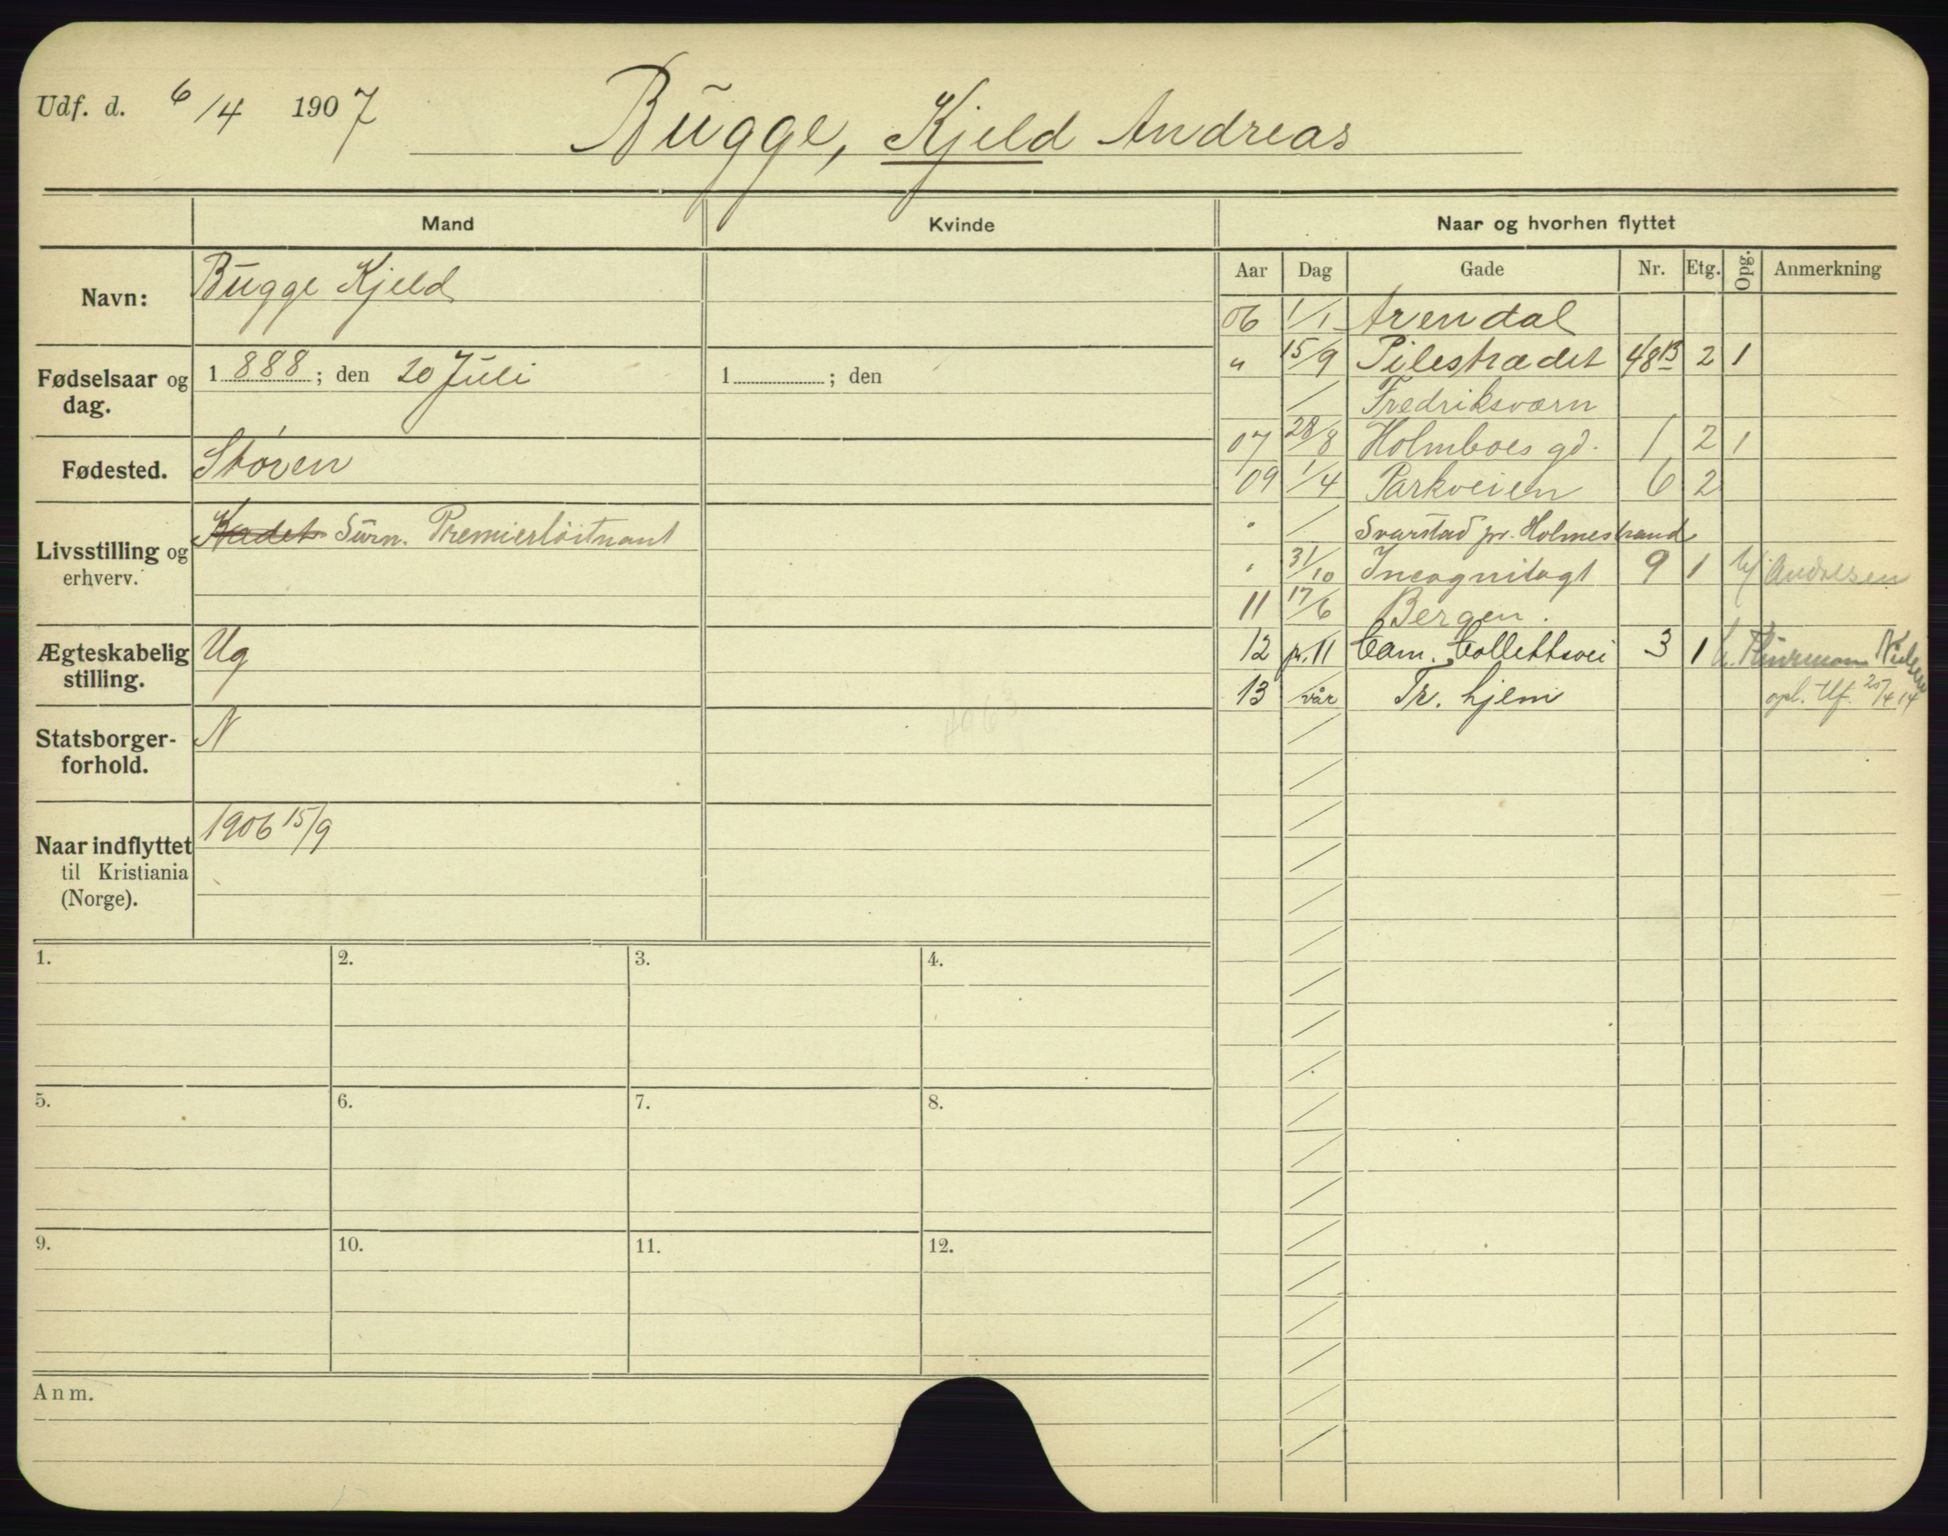 Udf. d. 6/4 1907
Bugge, Kjeld Andreas
Mand
Kvinde
Naar og hvorhen flyttet
Navn:
Bugge Kjeld
Aar Dag Gade Nr. Etg. Opg. Anmerkning
06 1/1 Arendal
" 15/9 Pilestrædet 48B 2 1
/ Fredriksværn
07 28/8 Holmboes gd. 1 2 1
09 1/4 Parkveien 6 2
" / Svarstad pr. Holmestrand
" 31/10 Incognitogt 9 1 h/ Andresen
11 17/6 Bergen.
12 pr. 11 Cam. Collettsvei 3 1 Nielsen
13 vår Tr. hjem opl. 25/4 14
Fødselsaar og
dag.
1888; den 20 Juli
1 ; den
Fødested.
Støren
Livsstilling og
erhverv.
Kadet Sürn. Premierløitnant
Ægteskabelig
stilling.
Ug
Statsborger-
forhold.
N
Naar indflyttet
til Kristiania
(Norge).
1906 15/9
1. 2. 3. 4.
5. 6. 7. 8.
9. 10. 11. 12.
Anm.